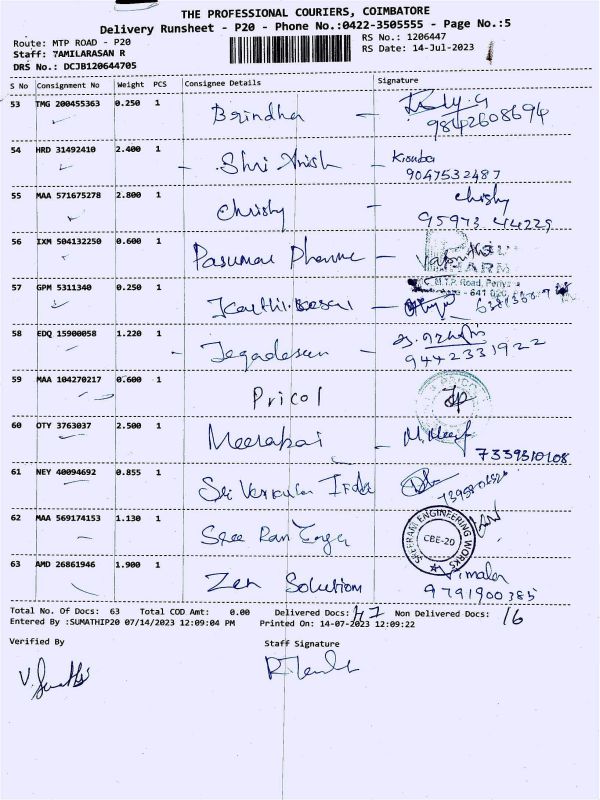 THE PROFESSIONAL COURIERS, COIMBATORE
Delivery Runsheet - P20 - Phone No.:0422-3505555 - Page No.:5
Route: MTP ROAD - P20
RS No.: 1206447
Staff: TAMILARASAN R
RS Date: 14-Jul-2023
DRS No.: DCJB120644705
S No Consignment No Weight PCS Consignee Details Signature
53 TMG 200455363 0.250 1 Brindha
9842608694
54 HRD 31492410 2.400 1 Shri Anish
9047532487
55 MAA 571675278 2.800 1 Chrishy Chrishy
95973 44225
56 IXM 504132250 0.600 1 Pasumai Pharma
57 GPM 5311340 0.250 1
58 EDQ 15900058 1.220 1 Jegadesan
9442331922
59 MAA 104270217 0.600 1 Pricol
60 OTY 3763037 2.500 1 Meerabai
7339510108
61 NEY 40094692 0.855 1 Sri
62 MAA 569174153 1.130 1 Sree Ram
SREERAM ENGINEERING WORKS
CBE-20
63 AMD 26861946 1.900 1 Zen Solution Vimala
9791900385
Total No. Of Docs: 63 Total COD Amt: 0.00 Delivered Docs: 47 Non Delivered Docs: 16
Entered By :SUMATHIP20 07/14/2023 12:09:04 PM Printed On: 14-07-2023 12:09:22
Verified By Staff Signature